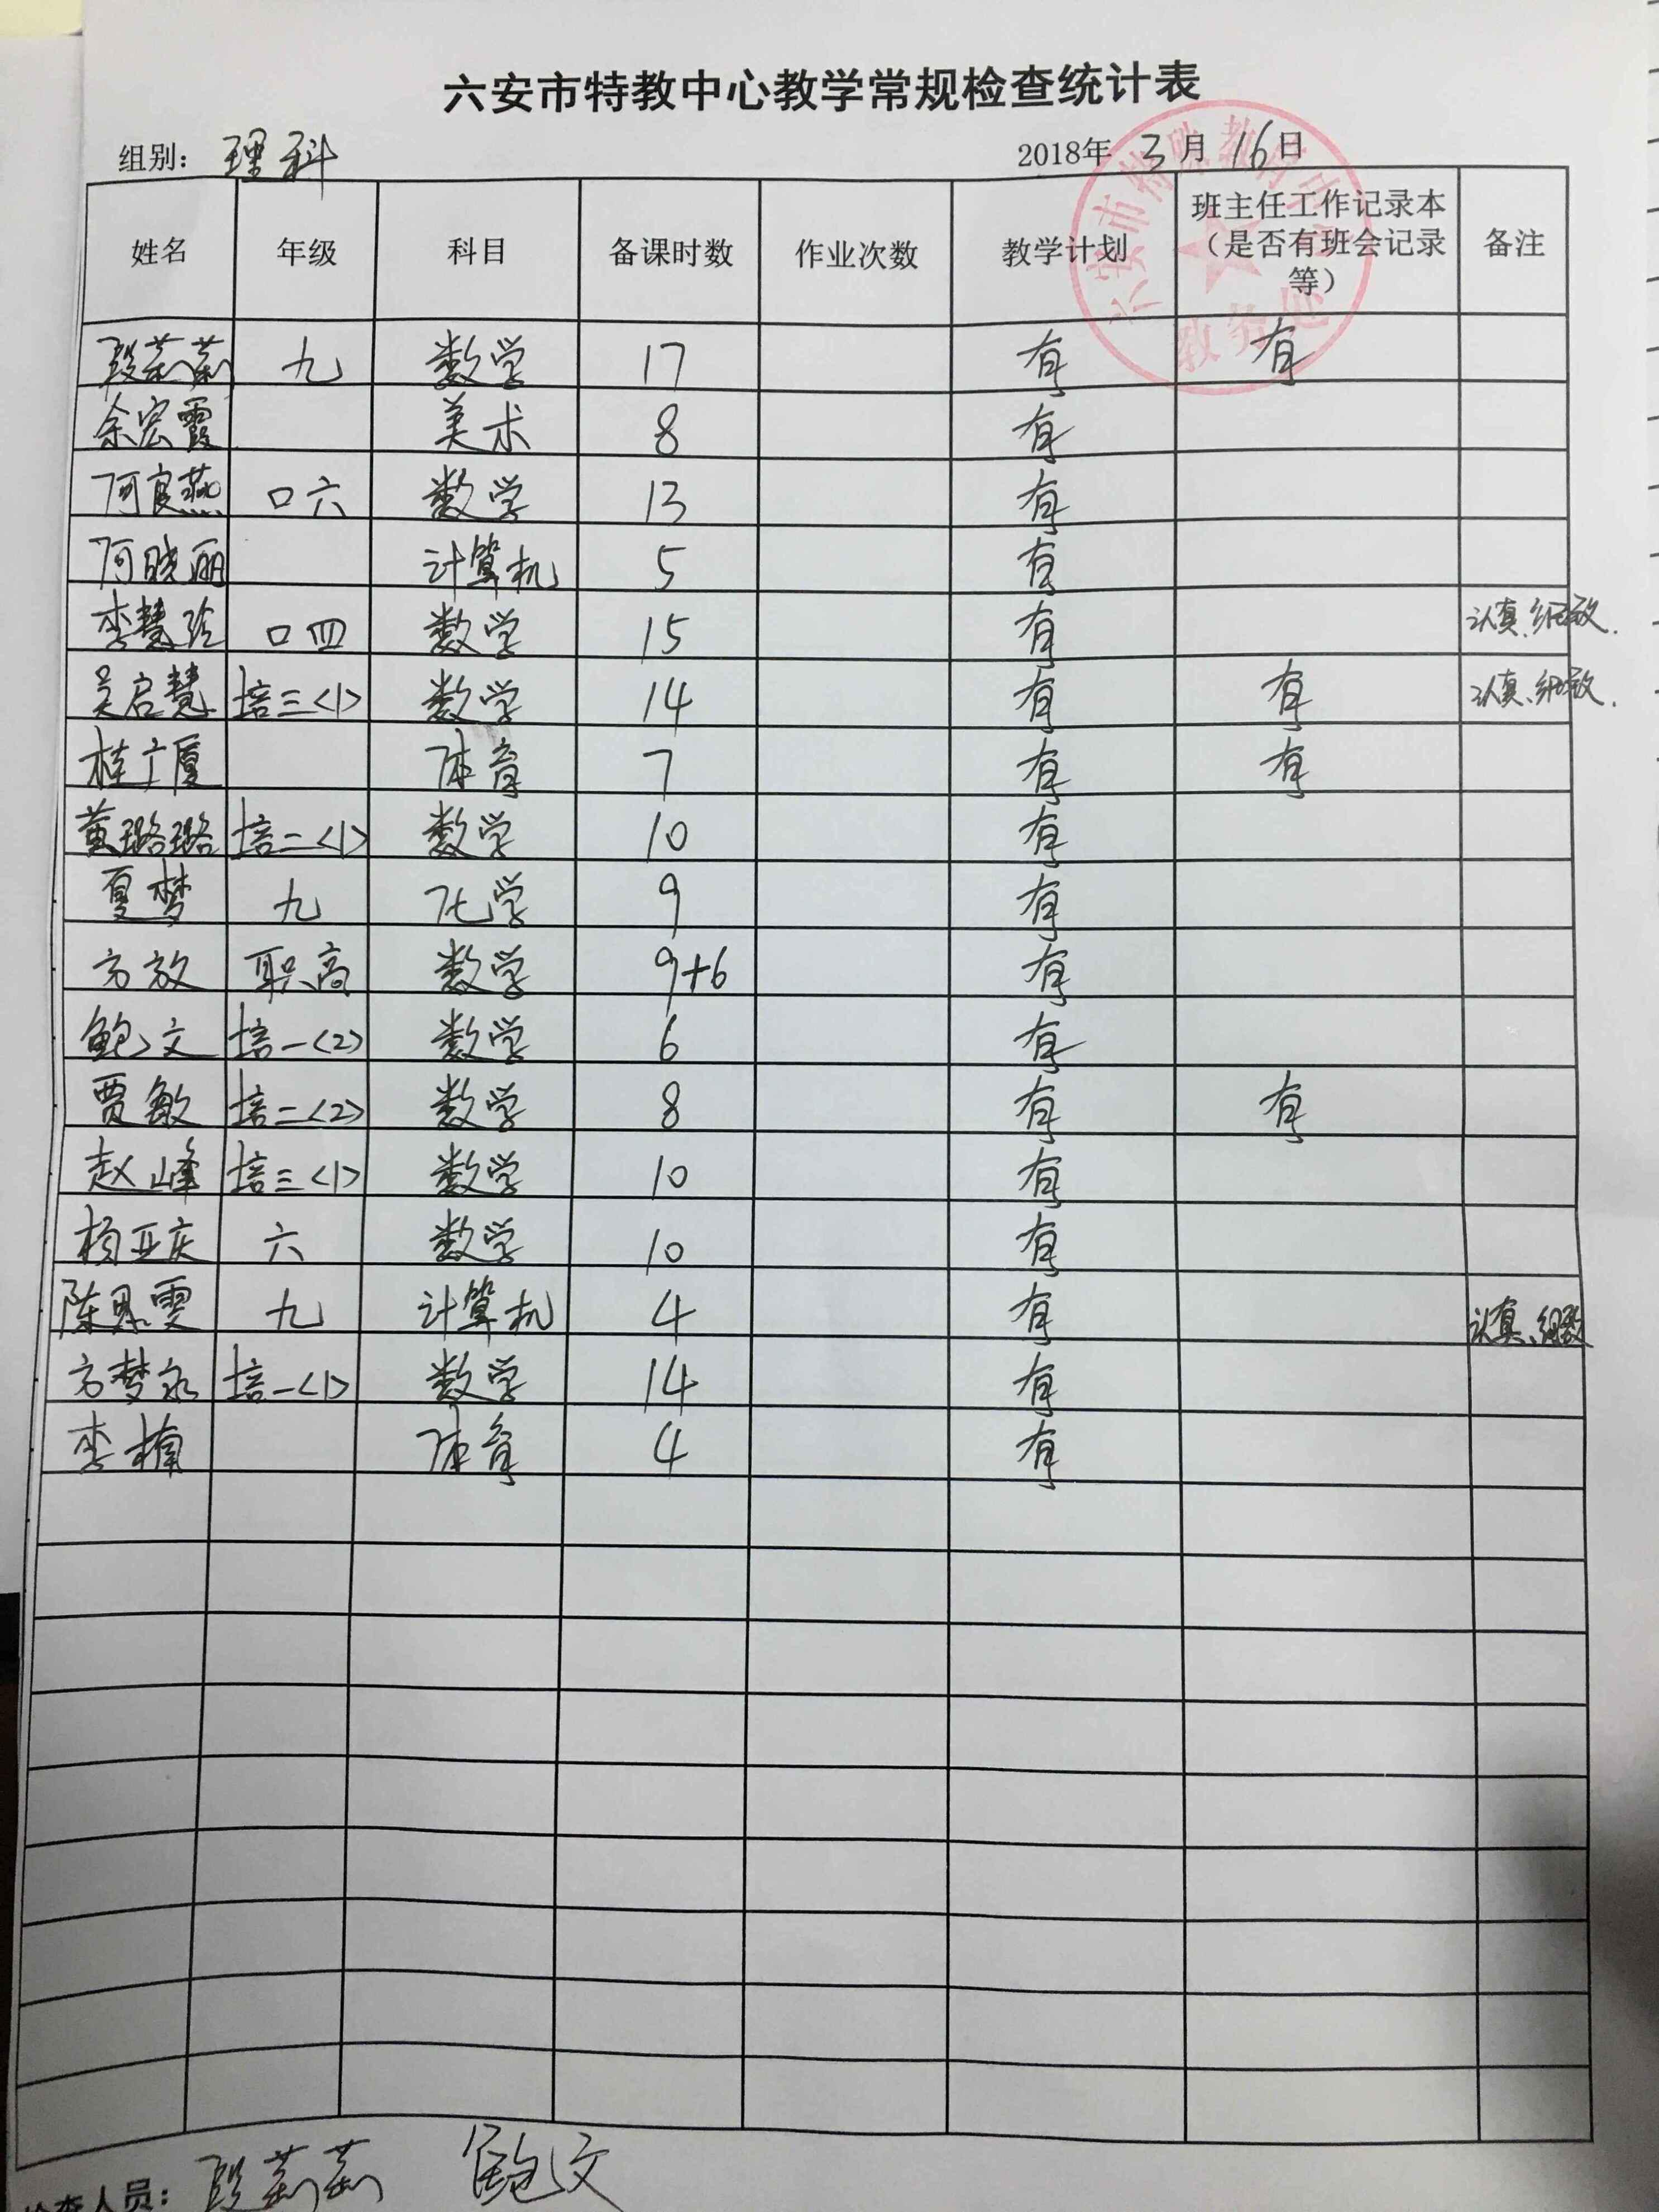 六安市特教中心教学常规检查统计表
组别：理科 2018年3月16日
姓名 年级 科目 备课时数 作业次数 教学计划 班主任工作记录本（是否有班会记录等） 备注
段莉莉 九 数学 17 有 有
余宏霞 美术 8 有
何良燕 口六 数学 13 有
何晓丽 计算机 5 有
李慧玲 口四 数学 15 有 认真、细致.
吴启慧 培三<1> 数学 14 有 有 认真、细致.
桂广厦 体育 7 有 有
黄璐璐 培二<1> 数学 10 有
夏梦 九 化学 9 有
方放 职高 数学 9+6 有
鲍文 培一<2> 数学 6 有
贾敏 培二<2> 数学 8 有 有
赵峰 培三<1> 数学 10 有
杨亚庆 六 数学 10 有
陈思雯 九 计算机 4 有 认真、细致
方梦 培一<1> 数学 14 有
李楠 体育 4 有
检查人员：段莉莉 鲍文
六安市特殊教育中心
教务处